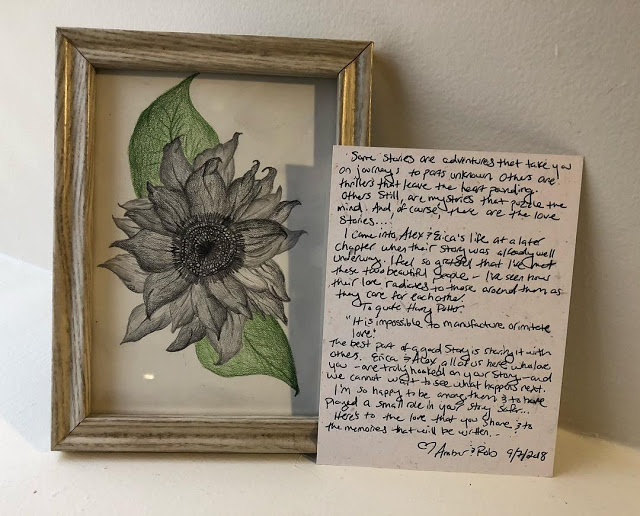 Some stories are adventures that take you
on journeys to parts unknown. Others are
thrillers that leave the heart pounding.
Others still, are mysteries that puzzle the
mind. And, of course, there are the love
stories...
I came into Alex & Erica's life at a later
chapter when their story was already well
underway. I feel so grateful that I've met
these two beautiful people - I've seen how
their love radiates to those around them as
they care for each other.
To quote Harry Potter:
"It is impossible to manufacture or imitate
love."
The best part of a good story is sharing it with
others. Erica & Alex all of us here who love
you - are truly hooked on your story - and
we cannot wait to see what happens next.
I'm so happy to be among them & to have
played a small role in your story so far...
Here's to the love that you share & to
the memories that will be written...
♡ Amber & Rob 9/2/2018